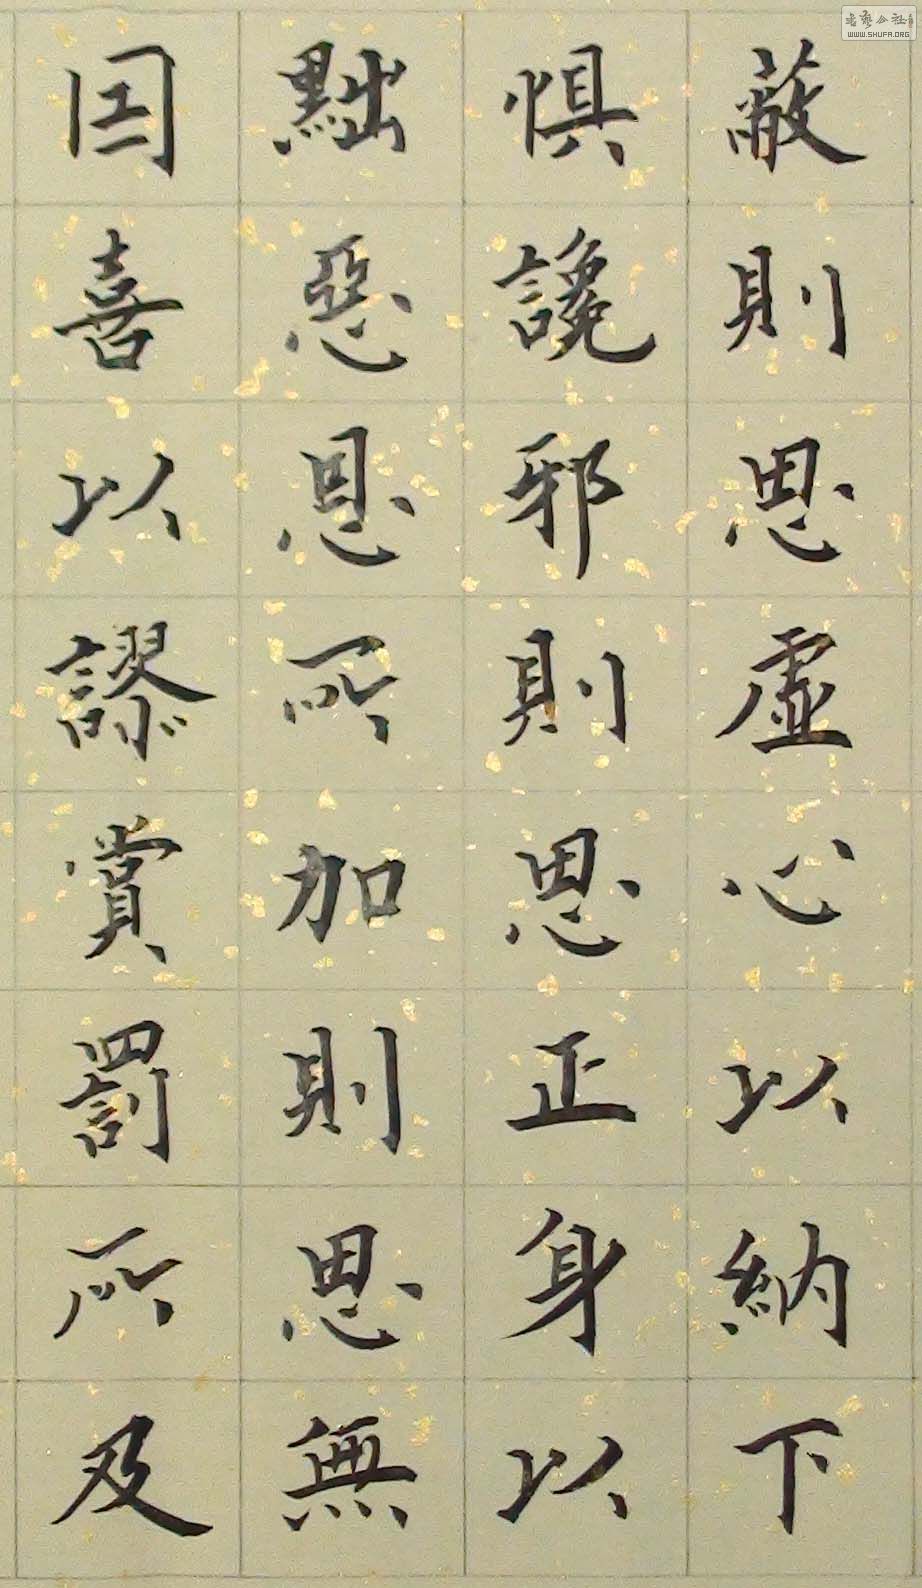 蔽則思虛心以納下
懼讒邪則思正身以
黜惡恩所加則思無
因喜以謬賞罰所及
WWW.SHUFA.ORG